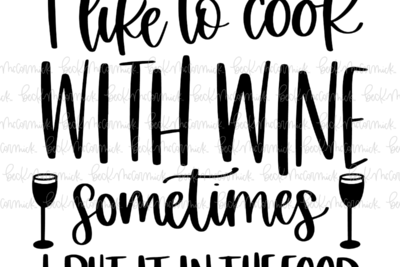 I like to cook
WITH WINE
sometimes
I PUT IT IN THE FOOD